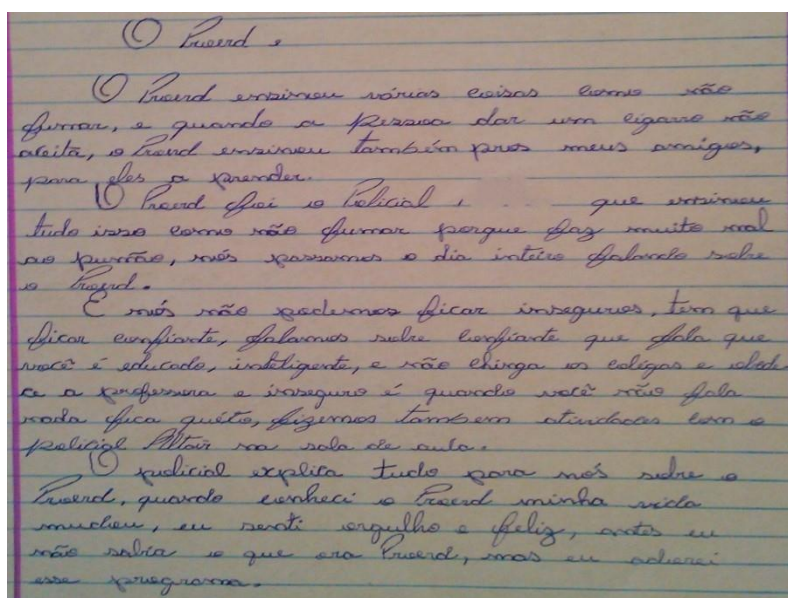 O Proerd.
O Proerd ensinou várias coisas como não
fumar, e quando a pessoa dar um cigarro não
aceita, o Proerd ensinou também pros meus amigos,
para eles a prender.
O Proerd foi o Policial, que ensinou
tudo isso como não fumar porque faz muito mal
ao pumão, nós passamos o dia inteiro falando sobre
o Proerd.
E nós não podemos ficar inseguros, tem que
ficar confiante, falamos sobre confiante que fala que
você é educado, inteligente, e não chinga os colégas e obede-
ce a professora e inseguro é quando você não fala
nada fica quéto, fizemos tambem atividades com o
policial Altair na sala de aula.
O policial explica tudo para nós sobre o
Proerd, quando conheci o Proerd minha vida
mudou, eu senti orgulho e feliz, antes eu
não sabia o que era Proerd, mas eu adorei
esse programa.